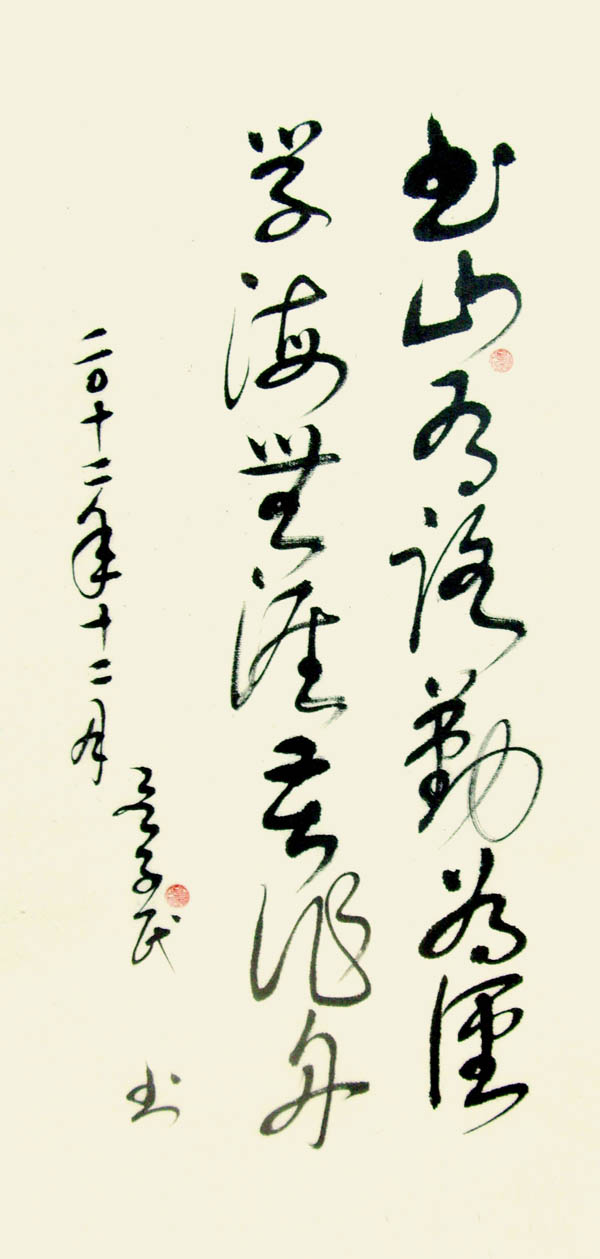 书山有路勤为径
学海無涯苦作舟
二0十二年十二月
子民
书